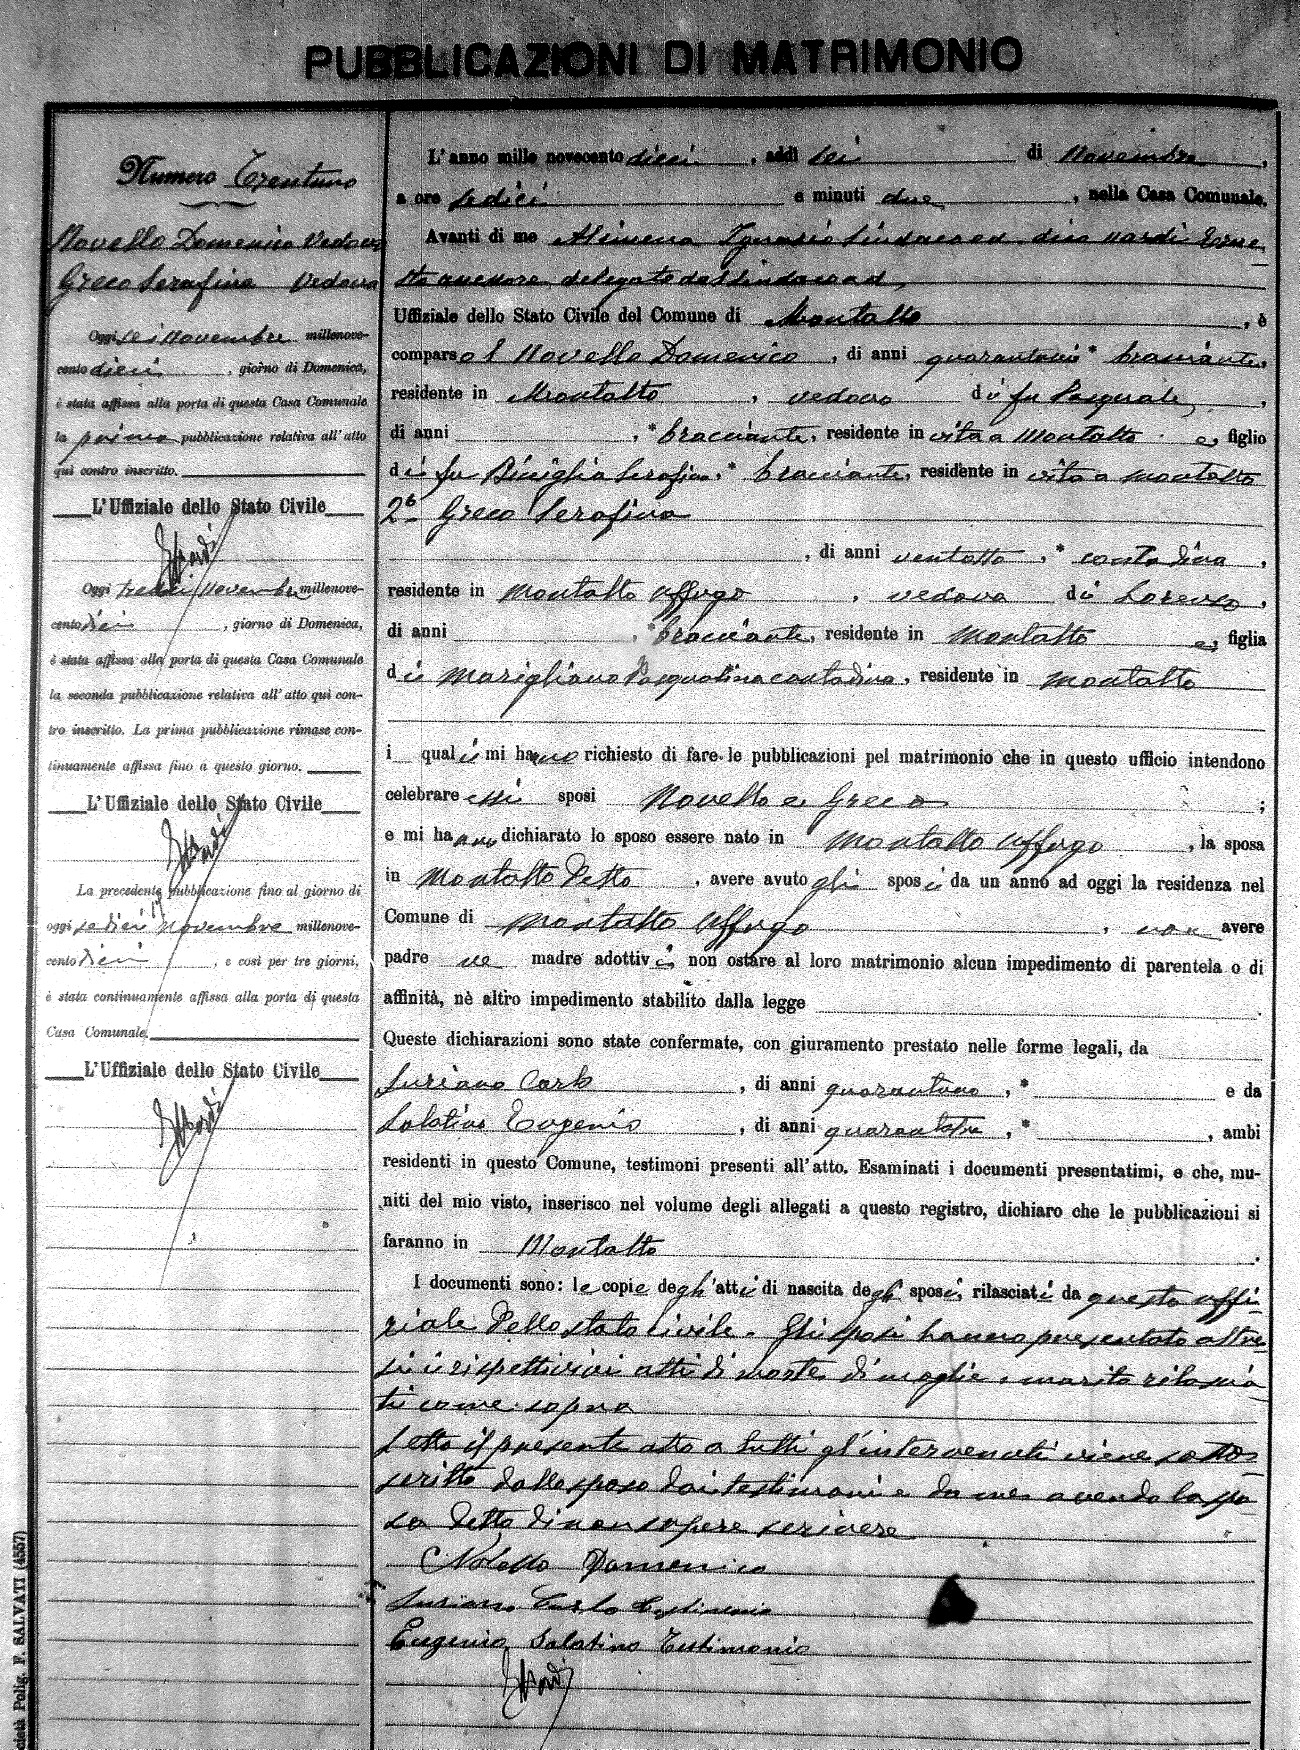 PUBBLICAZIONI DI MATRIMONIO
Numero Trentuno
Novello Domenico Vedovo
Greco Serafina Vedova
Oggi sei Novembre millenove-
cento dieci, giorno di Domenica,
è stata affissa alla porta di questa Casa Comunale
la prima pubblicazione relativa all'atto
qui contro inscritto.
L'Uffiziale dello Stato Civile
Oggi tredici Novembre millenove-
cento dieci, giorno di Domenica,
è stata affissa alla porta di questa Casa Comunale
la seconda pubblicazione relativa all'atto qui con-
tro inscritto. La prima pubblicazione rimase con-
tinuamente affissa fino a questo giorno.
L'Uffiziale dello Stato Civile
La precedente pubblicazione fino al giorno di
oggi sedici Novembre millenove-
cento dieci, e così per tre giorni,
è stata continuamente affissa alla porta di questa
Casa Comunale.
L'Uffiziale dello Stato Civile
L'anno mille novecento dieci, addì sei di Novembre,
a ore sedici e minuti due, nella Casa Comunale.
Avanti di me Alimena Ignazio Sindaco ed Nardi Erne
sto assessore delegato dal Sindaco ed
Uffiziale dello Stato Civile del Comune di Montalto, è
comparso 1 Novello Domenico, di anni * bracciante,
residente in Montalto, vedovo di fu Pasquale,
di anni , * bracciante, residente in vita a Montalto e, figlio
di fu Serafina, * bracciante, residente in vita a Montalto
2° Greco Serafina
, di anni ventotto, * contadina,
residente in Montalto Uffugo, vedova di Lorenzo,
di anni , * bracciante, residente in Montalto e, figlia
di Marigliano Pasqualina contadina, residente in Montalto
i quali mi hanno richiesto di fare le pubblicazioni pel matrimonio che in questo ufficio intendono
celebrare essi sposi Novello e Greco;
e mi hanno dichiarato lo sposo essere nato in Montalto Uffugo, la sposa
in Montalto detto, avere avuto gli sposi da un anno ad oggi la residenza nel
Comune di Montalto Uffugo, non avere
padre ne madre adottivi, non ostare al loro matrimonio alcun impedimento di parentela o di
affinità, nè altro impedimento stabilito dalla legge
Queste dichiarazioni sono state confermate, con giuramento prestato nelle forme legali, da
Suriano Carlo, di anni quarantuno, * e da
Salatino Eugenio, di anni quarantatre, * , ambi
residenti in questo Comune, testimoni presenti all'atto. Esaminati i documenti presentatimi, e che, mu-
niti del mio visto, inserisco nel volume degli allegati a questo registro, dichiaro che le pubblicazioni si
faranno in Montalto.
I documenti sono: le copie degli atti di nascita degli sposi, rilasciati da questo uffi
ziale dello stato civile. Gli sposi hanno presentato altre
si i rispettivi atti di morte di moglie e marito rilascia
ti come sopra
Letto il presente atto a tutti gl'intervenuti viene sotto
scritto dallo sposo dai testimoni e da me avendo la spo
sa detto di non sapere scrivere
Novello Domenico
Suriano Carlo Testimonio
Eugenio Salatino Testimonio
ENardi
Società Polig. F. SALVATI (4557)